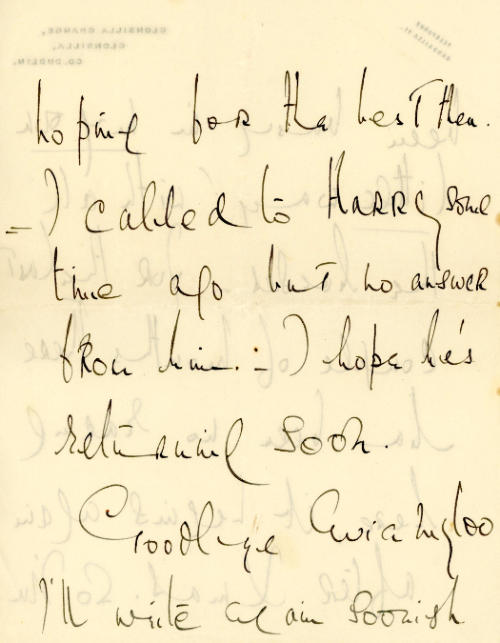 CLONSILLA GRANGE,
CLONSILLA,
CO. DUBLIN.
TELEPHONE
hoping for the best then.
– I called to Harry some
time ago but no answer
from him. – I hope he's
returning soon.
Goodbye
I'll write again soonish